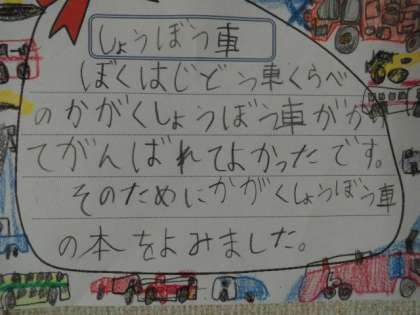 しょうぼう車
ぼくはじどう車くらべ
のかがくしょうぼう車がかけ
てがんばれてよかったです。
そのためにかがくしょうぼう車
の本をよみました。